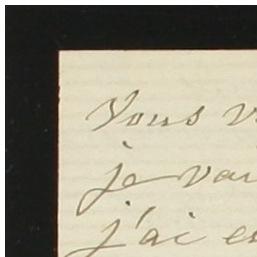 Vous v
je vai
j'ai es